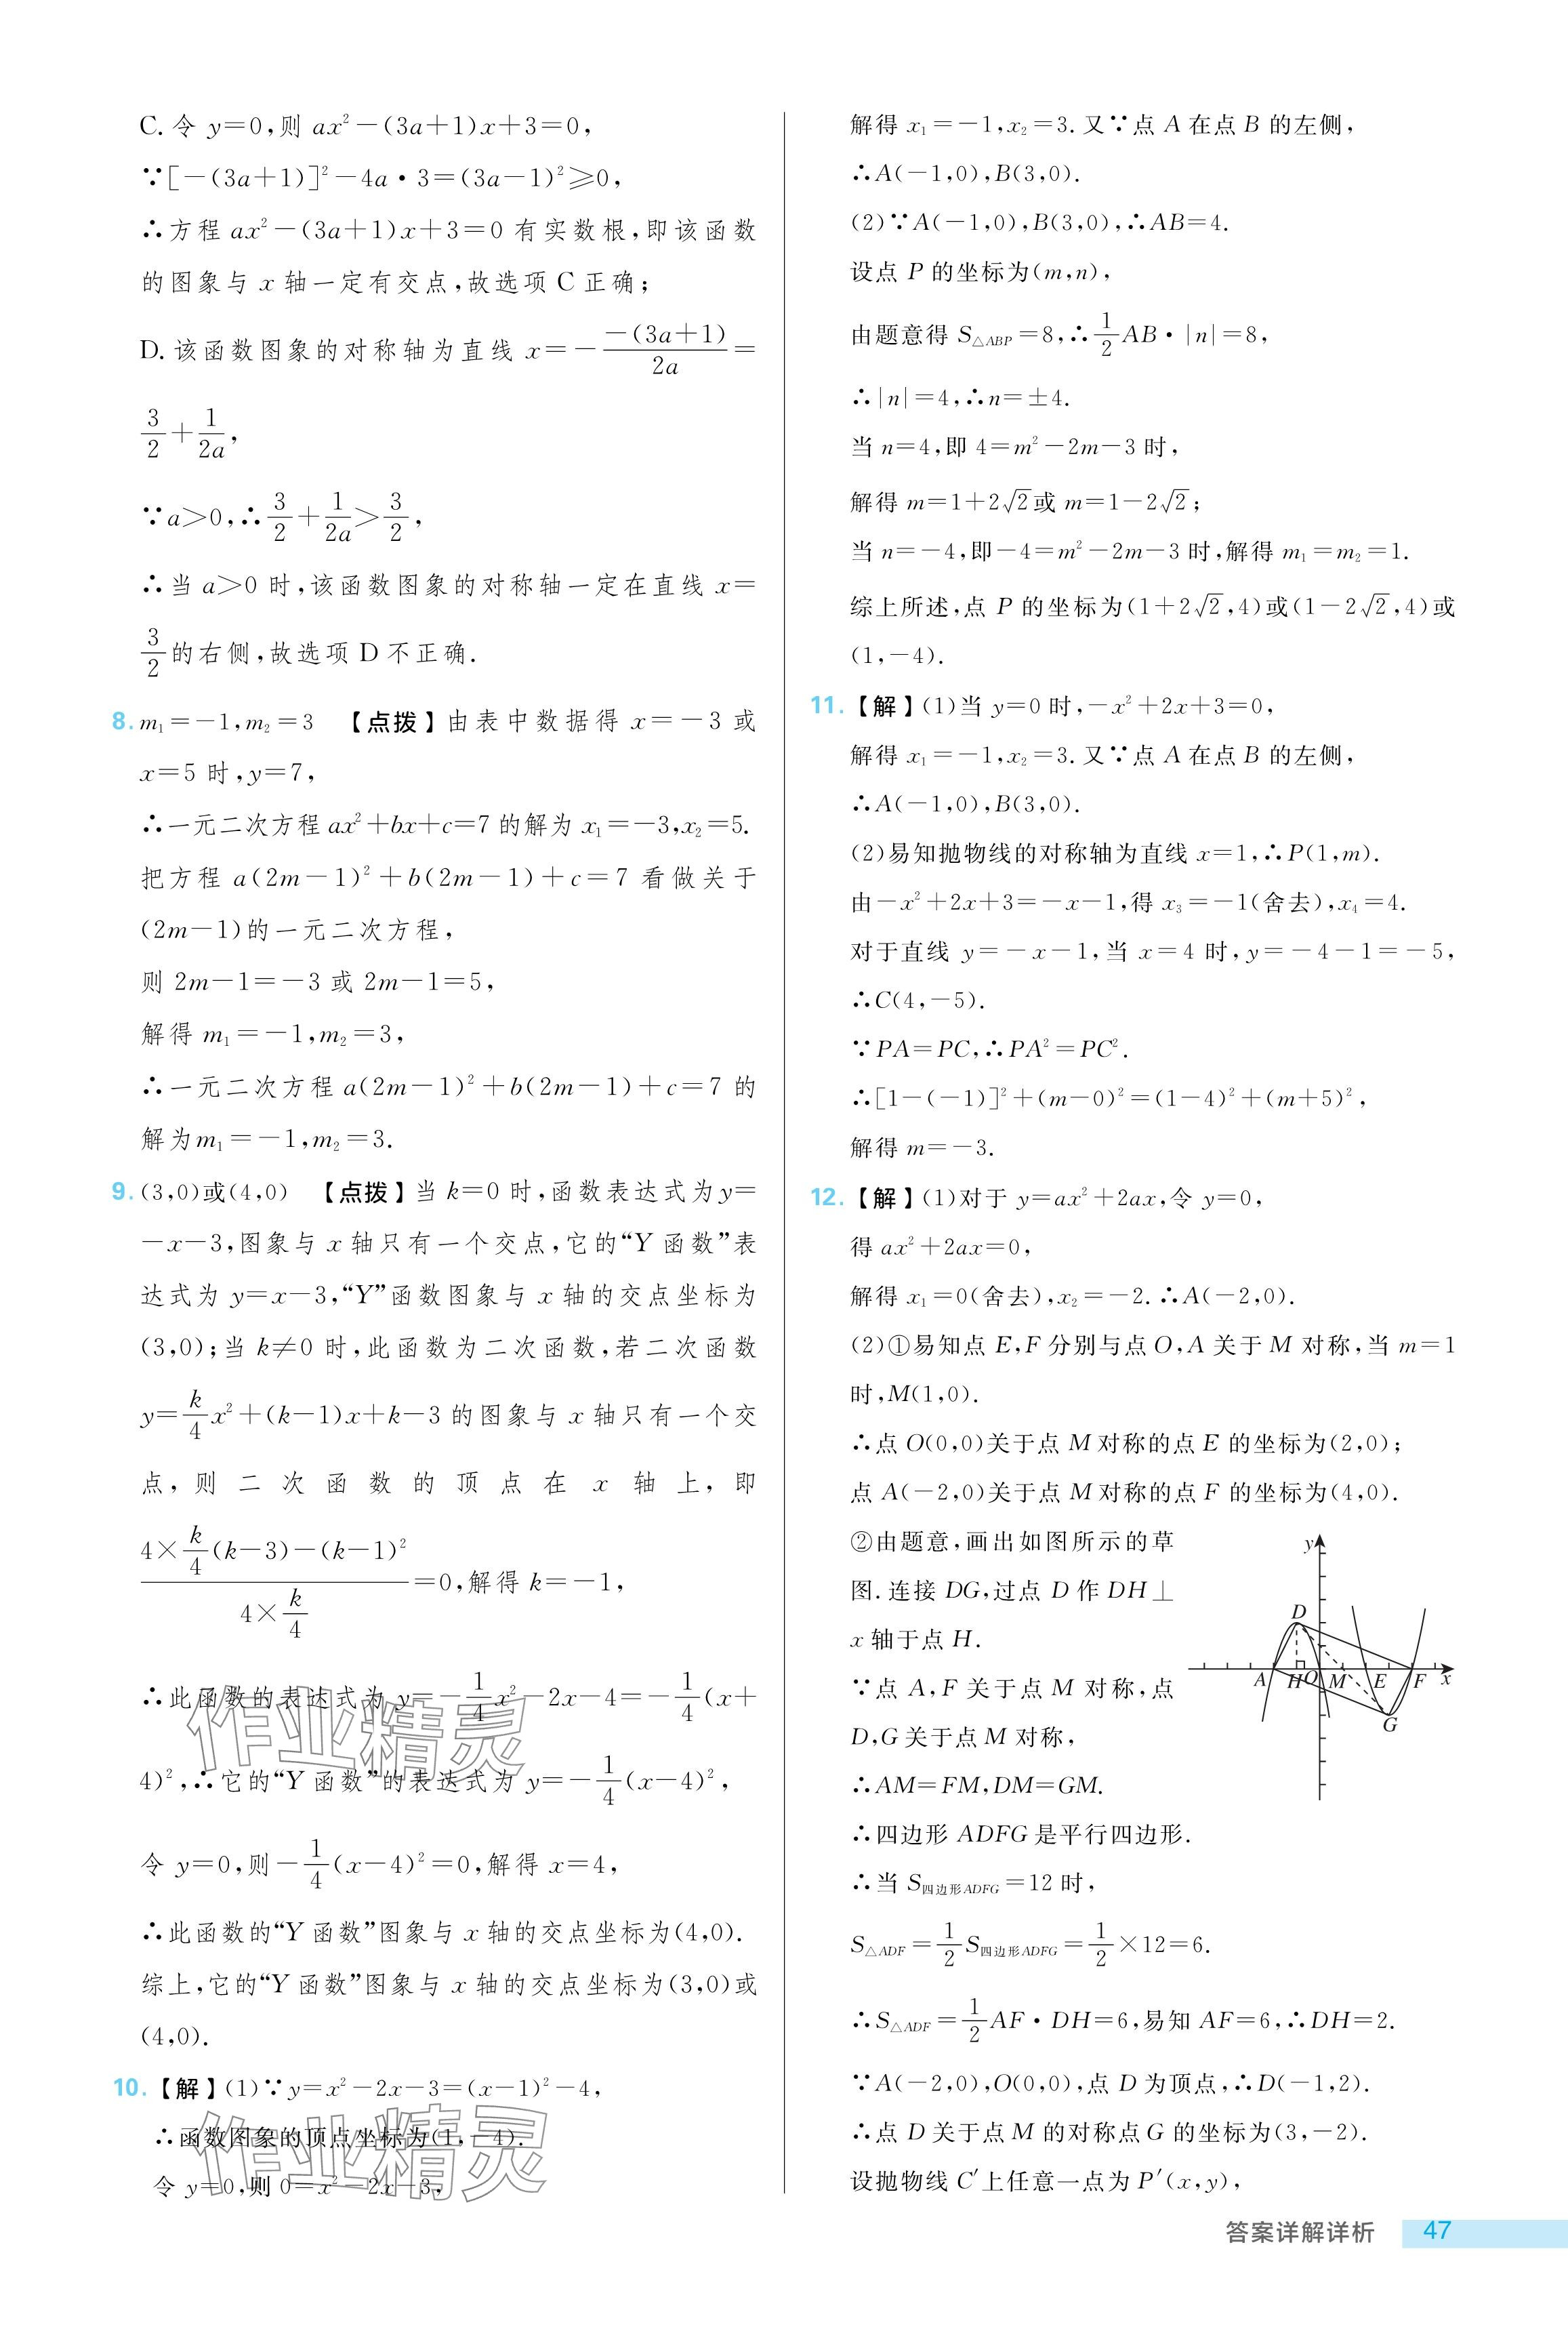 C. 令 y=0,则 ax²-(3a+1)x+3=0,
∵[-(3a+1)]²-4a·3=(3a-1)²≥0,
∴方程 ax²-(3a+1)x+3=0 有实数根,即该函数
的图象与 x 轴一定有交点,故选项 C 正确;
D. 该函数图象的对称轴为直线 x=-\frac{-(3a+1)}{2a}=
\frac{3}{2}+\frac{1}{2a},
∵a>0,∴\frac{3}{2}+\frac{1}{2a}>\frac{3}{2},
∴当 a>0 时,该函数图象的对称轴一定在直线 x=
\frac{3}{2}的右侧,故选项 D 不正确.
8. m₁=-1,m₂=3 【点拨】由表中数据得 x=-3 或
x=5 时,y=7,
∴一元二次方程 ax²+bx+c=7 的解为 x₁=-3,x₂=5.
把方程 a(2m-1)²+b(2m-1)+c=7 看做关于
(2m-1)的一元二次方程,
则 2m-1=-3 或 2m-1=5,
解得 m₁=-1,m₂=3,
∴一元二次方程 a(2m-1)²+b(2m-1)+c=7 的
解为m₁=-1,m₂=3.
9. (3,0)或(4,0) 【点拨】当 k=0 时,函数表达式为y=
-x-3,图象与 x 轴只有一个交点,它的“Y 函数”表
达式为 y=x-3,“Y”函数图象与 x 轴的交点坐标为
(3,0);当 k≠0 时,此函数为二次函数,若二次函数
y=\frac{k}{4}x²+(k-1)x+k-3 的图象与 x 轴只有一个交
点,则二次函数的顶点在 x 轴上,即
\frac{4×\frac{k}{4}(k-3)-(k-1)²}{4×\frac{k}{4}}=0,解得 k=-1,
∴此函数的表达式为 y=-\frac{1}{4}x²-2x-4=-\frac{1}{4}(x+
4)²,∴它的“Y 函数”的表达式为 y=-\frac{1}{4}(x-4)²,
令 y=0,则-\frac{1}{4}(x-4)²=0,解得 x=4,
∴此函数的“Y 函数”图象与 x 轴的交点坐标为(4,0).
综上,它的“Y 函数”图象与 x 轴的交点坐标为(3,0)或
(4,0).
10.【解】(1)∵y=x²-2x-3=(x-1)²-4,
∴函数图象的顶点坐标为(1,-4).
令 y=0,则 0=x²-2x-3,
解得 x₁=-1,x₂=3. 又∵点 A 在点 B 的左侧,
∴A(-1,0),B(3,0).
(2)∵A(-1,0),B(3,0),∴AB=4.
设点 P 的坐标为(m,n),
由题意得 S△ABP=8,∴\frac{1}{2}AB·|n|=8,
∴|n|=4,∴n=±4.
当 n=4,即 4=m²-2m-3 时,
解得 m=1+2√2或 m=1-2√2;
当 n=-4,即-4=m²-2m-3 时,解得 m₁=m₂=1.
综上所述,点 P 的坐标为(1+2√2,4)或(1-2√2,4)或
(1,-4).
11.【解】(1)当 y=0 时,-x²+2x+3=0,
解得 x₁=-1,x₂=3. 又∵点 A 在点 B 的左侧,
∴A(-1,0),B(3,0).
(2)易知抛物线的对称轴为直线 x=1,∴P(1,m).
由-x²+2x+3=-x-1,得 x₃=-1(舍去),x₄=4.
对于直线 y=-x-1,当 x=4 时,y=-4-1=-5,
∴C(4,-5).
∵PA=PC,∴PA²=PC².
∴[1-(-1)]²+(m-0)²=(1-4)²+(m+5)²,
解得 m=-3.
12.【解】(1)对于 y=ax²+2ax,令 y=0,
得 ax²+2ax=0,
解得 x₁=0(舍去),x₂=-2. ∴A(-2,0).
(2)①易知点 E,F 分别与点 O,A 关于 M 对称,当 m=1
时,M(1,0).
∴点 O(0,0)关于点 M 对称的点 E 的坐标为(2,0);
点 A(-2,0)关于点 M 对称的点 F 的坐标为(4,0).
②由题意,画出如图所示的草
图. 连接 DG,过点 D 作 DH⊥
x 轴于点 H.
∵点 A,F 关于点 M 对称,点
D,G 关于点 M 对称,
∴AM=FM,DM=GM.
y
D
A H O M E F x
G
∴四边形 ADFG 是平行四边形.
∴当 S四边形ADFG=12 时,
S△ADF=\frac{1}{2}S四边形ADFG=\frac{1}{2}×12=6.
∴S△ADF=\frac{1}{2}AF·DH=6,易知 AF=6,∴DH=2.
∵A(-2,0),O(0,0),点 D 为顶点,∴D(-1,2).
∴点 D 关于点 M 的对称点 G 的坐标为(3,-2).
设抛物线 C′上任意一点为 P′(x,y),
作业精灵
作业精灵
答案详解详析 47